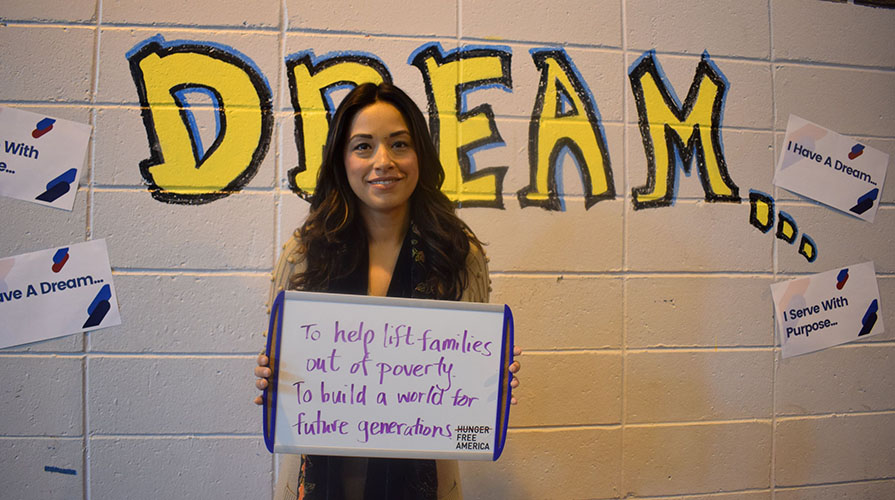 DREAM...
With
pose...
I Have A Dream...
ave A Dream...
I Serve With
Purpose...
To help lift families
out of poverty.
To build a world for
future generations.
HUNGER
FREE
AMERICA